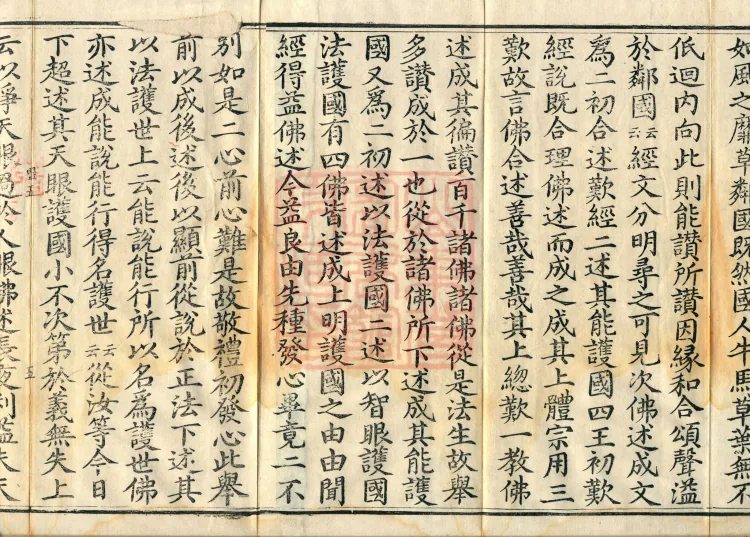 如風之靡草鄰國既然國人牛馬草葉無不
低迴內向此則能讃所讃因緣和合頌聲溢
於鄰國云云經文分明尋之可見次佛述成文
爲二初合述歎經二述其能護國四王初歎
經說既合理佛述而成之成其上體宗用三
歎故言佛合述善哉善哉其上總歎一教佛
述成其徧讃百千諸佛諸佛從是法生故舉
多讃成於一也從於諸佛所下述成其能護
國又爲二初述以法護國二述以智眼護國
法護國有四佛皆述成上明護國之由由聞
經得益佛述今益良由先種發心畢竟二不
別如是二心前心難是故敬禮初發心此舉
前以成後述後以顯前從說於正法下述其
以法護世上云能說能行所以名爲護世佛
亦述成能說能行得名護世云云從汝等今日
下超述其天眼護國小不次第於義無失上
云以淨天眼過於人眼佛述長夜利益夫天